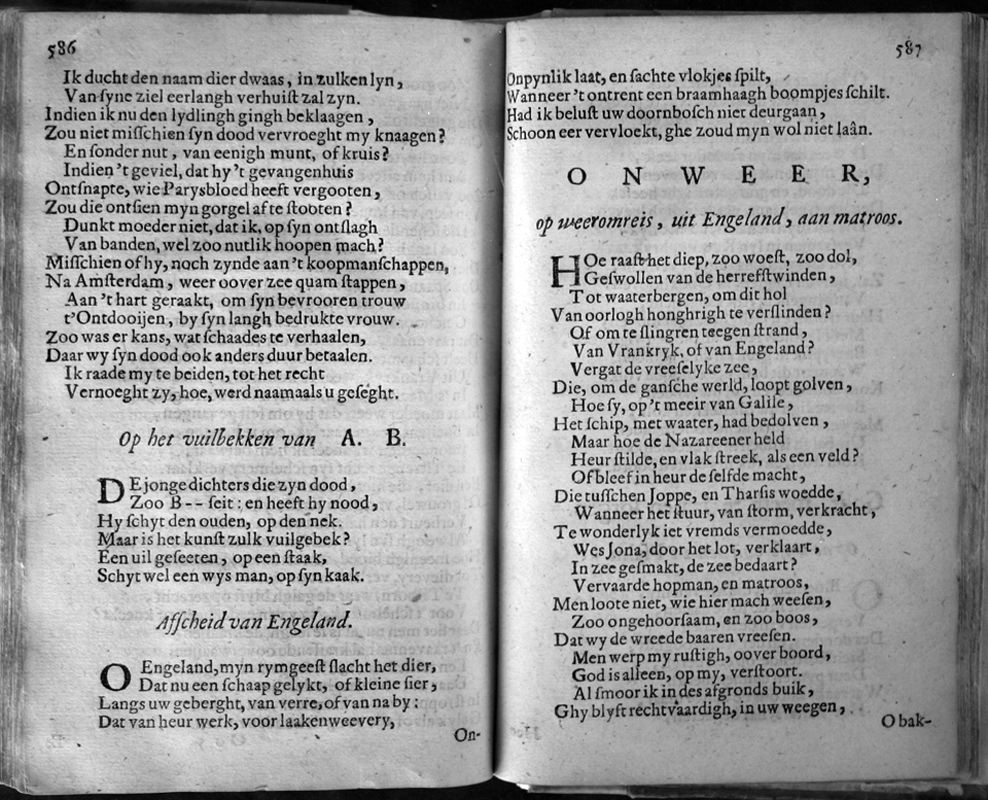 586
Ik ducht den naam dier dwaas, in zulken lyn,
Van ſyne ziel eerlangh verhuiſt zal zyn.
Indien ik nu den lydlingh gingh beklaagen,
Zou niet miſſchien ſyn dood vervroeght my knaagen?
En ſonder nut, van eenigh munt, of kruis?
Indien 't geviel, dat hy 't gevangenhuis
Ontſnapte, wie Parysbloed heeft vergooten,
Zou die ontſien myn gorgel af te ſtooten?
Dunkt moeder niet, dat ik, op ſyn ontſlagh
Van banden, wel zoo nutlik hoopen mach?
Miſſchien of hy, noch zynde aan 't koopmanſchappen,
Na Amſterdam, weer oover zee quam ſtappen,
Aan 't hart geraakt, om ſyn bevrooren trouw
t'Ontdooijen, by ſyn langh bedrukte vrouw.
Zoo was er kans, wat ſchaades te verhaalen,
Daar wy ſyn dood ook anders duur betaalen.
Ik raade my te beiden, tot het recht
Vernoeght zy, hoe, werd naamaals u geſeght.
Op het vuilbekken van A. B.
DE jonge dichters die zyn dood,
Zoo B-- ſeit: en heeft hy nood,
Hy ſchyt den ouden, op den nek.
Maar is het kunſt zulk vuilgebek?
Een uil geſeeten, op een ſtaak,
Schyt wel een wys man, op ſyn kaak.
Afſcheid van Engeland.
O Engeland, myn rymgeeſt ſlacht het dier,
Dat nu een ſchaap gelykt, of kleine ſier,
Langs uw geberght, van verre, of van na by:
Dat van heur werk, voor laakenweevery,
On-
587
Onpynlik laat, en ſachte vlokjes ſpilt,
Wanneer 't ontrent een braamhaagh boompjes ſchilt.
Had ik beluſt uw doornboſch niet deurgaan,
Schoon eer vervloekt, ghe zoud myn wol niet laân.
ONWEER,
op weeromreis, uit Engeland, aan matroos.
HOe raaſt het diep, zoo woeſt, zoo dol,
Geſwollen van de herrefſtwinden,
Tot waaterbergen, om dit hol
Van oorlogh honghrigh te verſlinden?
Of om te ſlingren teegen ſtrand,
Van Vrankryk, of van Engeland?
Vergat de vreeſelyke zee,
Die, om de ganſche werld, loopt golven,
Hoe ſy, op 't meeir van Galile,
Het ſchip, met waater, had bedolven,
Maar hoe de Nazareener held
Heur ſtilde, en vlak ſtreek, als een veld?
Of bleef in heur de ſelfde macht,
Die tuſſchen Joppe, en Tharſis woedde,
Wanneer het ſtuur, van ſtorm, verkracht,
Te wonderlyk iet vremds vermoedde,
Wes Jona, door het lot, verklaart,
In zee geſmakt, de zee bedaart?
Vervaarde hopman, en matroos,
Men loote niet, wie hier mach weeſen,
Zoo ongehoorſaam, en zoo boos,
Dat wy de wreede baaren vreeſen.
Men werp my ruſtigh, oover boord,
God is alleen, op my, verſtoort.
Al ſmoor ik in des afgronds buik,
Ghy blyft rechtvaardigh, in uw weegen,
O bak-